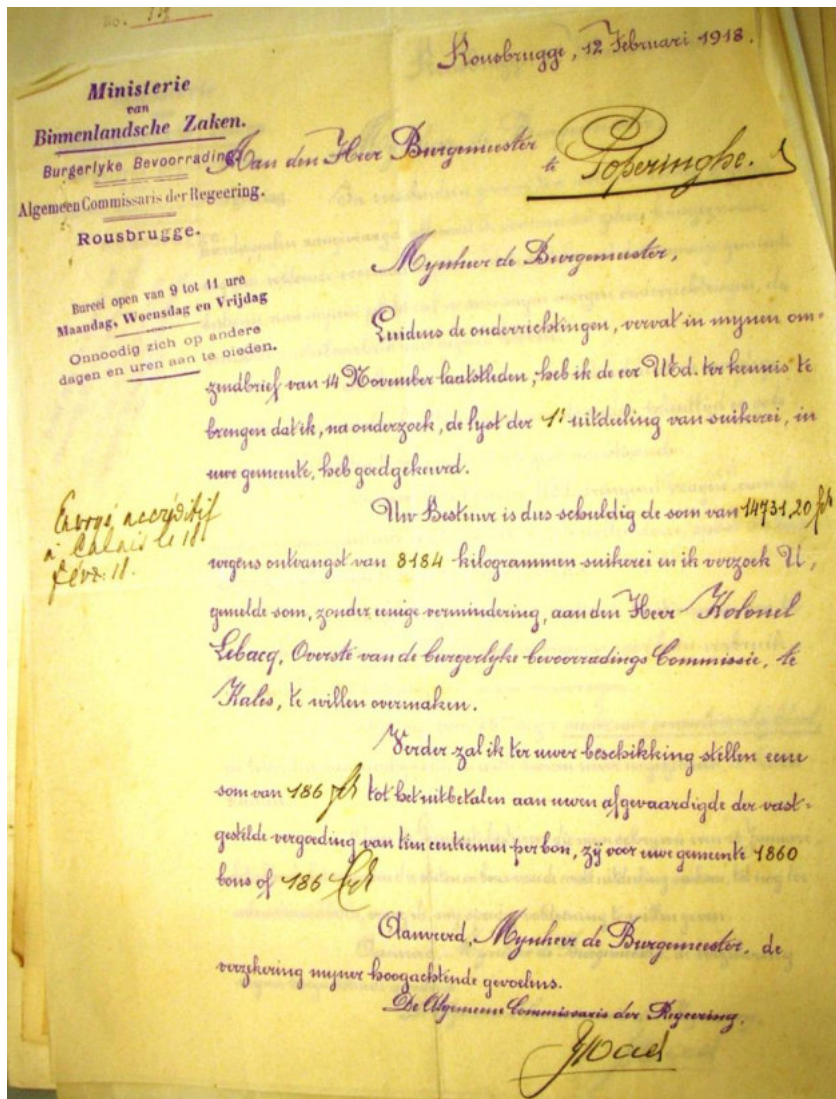 No. 118
Rousbrugge, 12 Februari 1918.
Ministerie
van
Binnenlandsche Zaken.
Burgerlyke Bevoorrading.
Algemeen Commissaris der Regeering.
Rousbrugge.
Bureel open van 9 tot 11 ure
Maandag, Woensdag en Vrijdag
Onnoodig zich op andere
dagen en uren aan te bieden.
Aan den Heer Burgemeester
te Poperinghe.
Mynheer de Burgemeester,
Luidens de onderrichtingen, vervat in mynen om-
zendbrief van 14 November laatstleden, heb ik de eer UEd. ter kennis te
brengen dat ik, na onderzoek, de lyst der 1e uitdeeling van suikerei, in
uwe gemeente, heb goedgekeurd.
Uw Bestuur is dus schuldig de som van 14731,20 fr
wegens ontvangst van 8184 kilogrammen suikerei en ik verzoek U,
gemelde som, zonder eenige vermindering, aan den Heer Kolonel
Lebacq, Overste van de burgerlyke bevoorradings Commissie, te
Kales, te willen overmaken.
Envoyé accréditif
à Calais le 18
févr. 18.
Verder zal ik ter uwer beschikking stellen eene
som van 186 fr tot het uitbetalen aan uwen afgevaardigde der vast-
gestelde vergoeding van tien centiemen per bon, zij voor uwe gemeente 1860
bons of 186 fr
Aanveerd, Mynheer de Burgemeester, de
verzekering myner hoogachtende gevoelens.
De Algemeene Commissaris der Regeering.